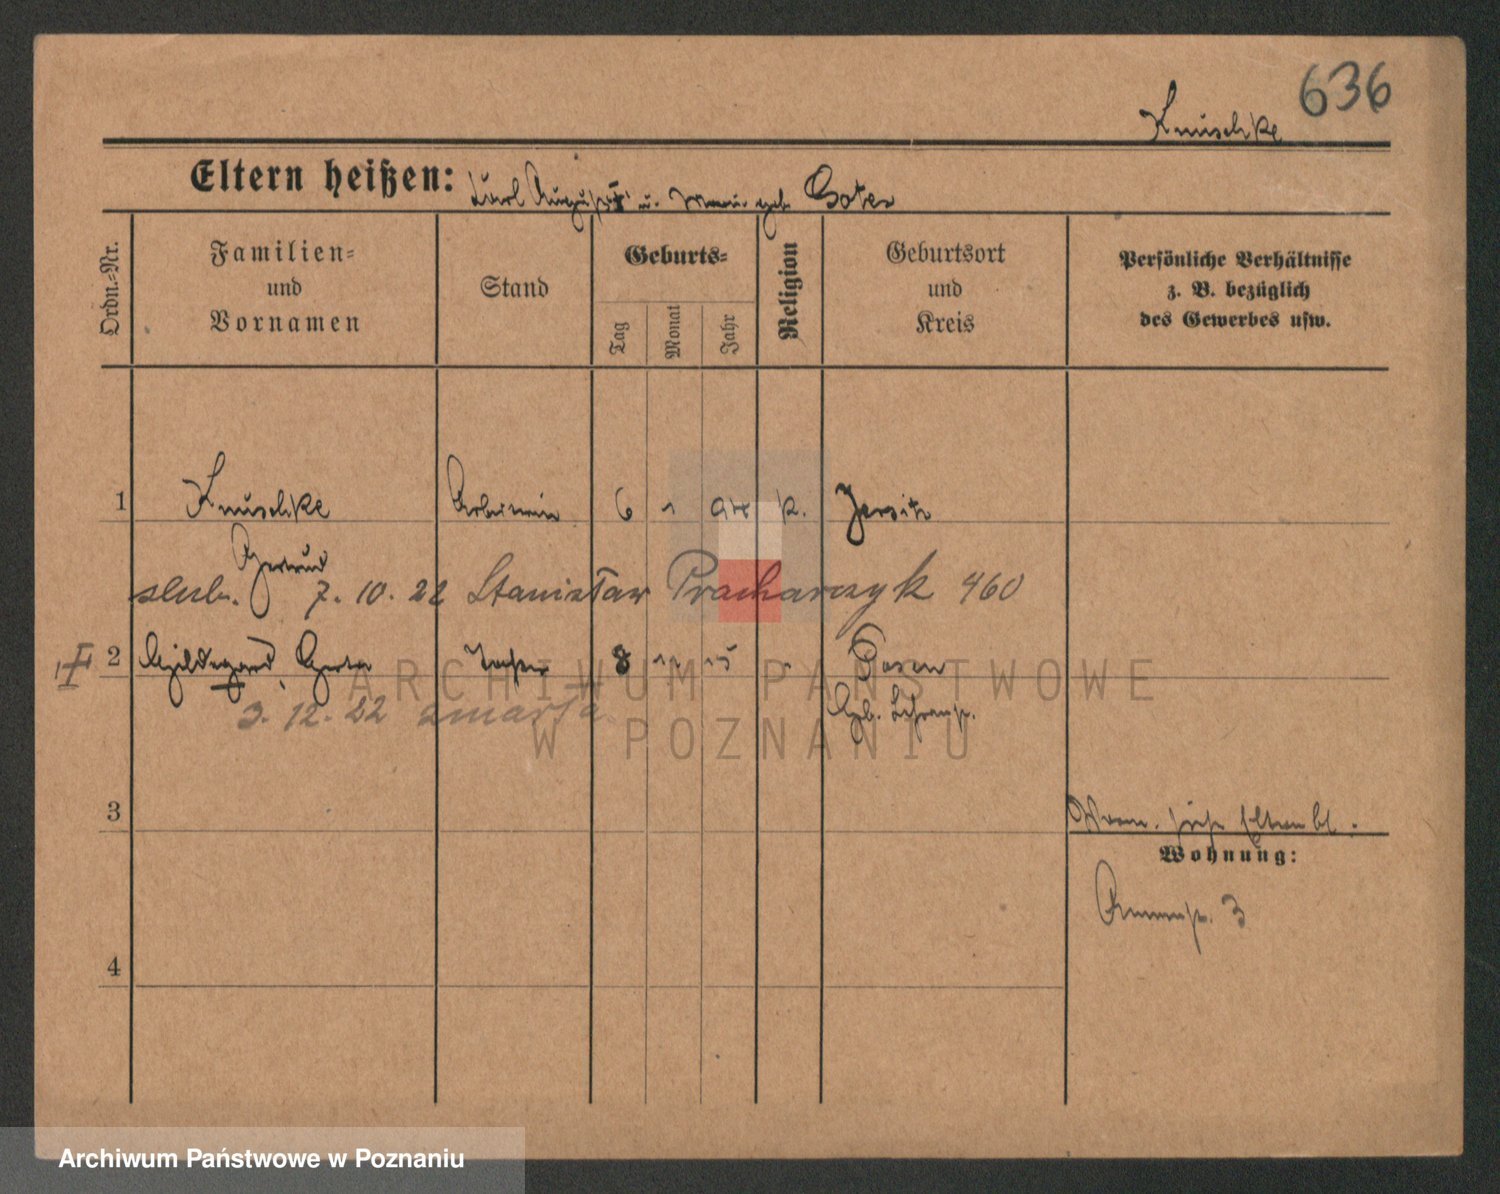 636
Knuschke
Eltern heißen: Karl August u. Marie geb.
Ordn.=Nr.
Familien=
und
Vornamen
Stand
Geburts=
Tag
Monat
Jahr
Religion
Geburtsort
und
Kreis
Persönliche Verhältnisse
z. B. bezüglich
des Gewerbes usw.
1 Knuschke Arbeiterin 6 1 94 k. Jersitz
Gertrud
slub. 7. 10. 22 Stanisław Pracharczyk 460
2 Hildegard, Gerta Tochter 8 11 15 " Posen
3. 12. 22 zmarła
3
Wohnung:
3
4
ARCHIWUM PAŃSTWOWE
W POZNANIU
Archiwum Państwowe w Poznaniu